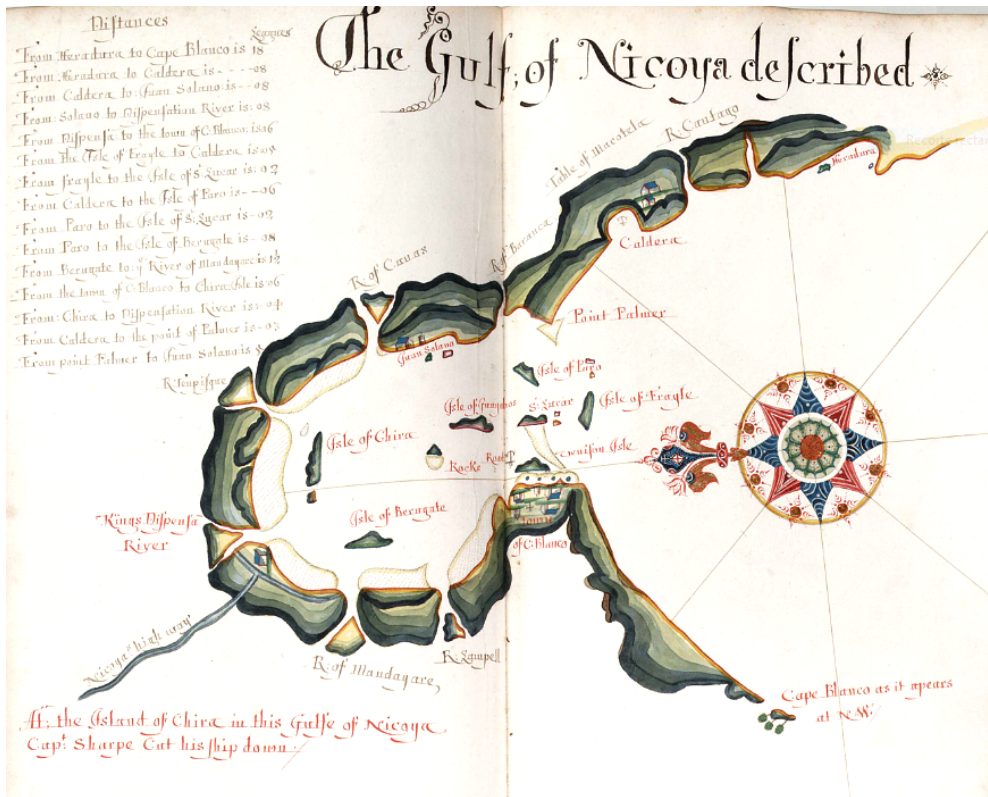 Distances
Leagues
From Heradura to Cape Blanco is 18
From Heradura to Caldera is - - - - 08
From Caldera to: Juan Solano is - - 08
From: Solano to Dispensation River is: 08
From Dispensa to the town of C: Blanco: is 16
From the Isle of Frayle to Caldera is
From frayle to the Isle of St Lucar is: 02
From Caldera to the Isle of Paro is - - 06
From Paro to the Isle of St: Lucar is - 02
From Paro to the Isle of Berugate is - 08
From Berugate to: ye River of Mandayare is
From the town of C: Blanco to Chira Isle is 06
From: Chira to Dispensation River is: 04
From Caldera to the point of Palmer is - 03
From point Palmer to Juan Solano is
The Gulf, of Nicoya described
Table of Marotela
R. Cartago
Heradura
Caldera
R. of Baranca
R. of Cavas
Point Palmer
Juan Solano
Isle of Paro
St: Lucar
Isle of Frayle
Isle of Chira
Rocks
Isle of Berugate
Kings Dispensa
River
Town
of C: Blanco
Nicoya high way
R: of Mandayare,
Cape Blanco as it apears
at N.W.
At, the Island of Chira in this Gulfe of Nicoya
Capt Sharpe Cut his ship down: